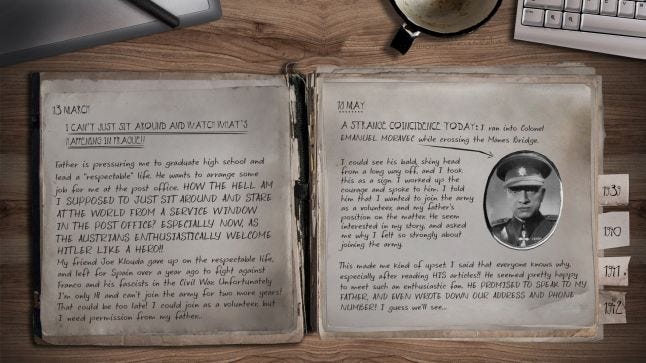 13 MARCH
I CAN'T JUST SIT AROUND AND WATCH WHAT'S
HAPPENING IN PRAGUE!!
Father is pressuring me to graduate high school and
lead a "respectable" life. He wants to arrange some
job for me at the post office. HOW THE HELL AM
I SUPPOSED TO JUST SIT AROUND AND STARE
AT THE WORLD FROM A SERVICE WINDOW
IN THE POST OFFICE? ESPECIALLY NOW, AS
THE AUSTRIANS ENTHUSIASTICALLY WELCOME
HITLER LIKE A HERO!!
My friend Joe Klouda gave up on the respectable life,
and left for Spain over a year ago to fight against
Franco and his fascists in the Civil War. Unfortunately
I'm only 18 and can't join the army for two more years!
That could be too late! I could join as a volunteer, but
I need permission from my father...
18 MAY
A STRANGE COINCIDENCE TODAY: I ran into Colonel
EMANUEL MORAVEC while crossing the Mánes Bridge.
I could see his bald, shiny head
from a long way off, and I took
this as a sign. I worked up the
courage and spoke to him. I told
him that I wanted to join the army
as a volunteer, and my father's
position on the matter. He seem
interested in my story, and asked
me why I felt so strongly about
joining the army.
This made me kind of upset. I said that everyone knows why,
especially after reading HIS articles!! He seemed pretty happy
to meet such an enthusiastic fan. HE PROMISED TO SPEAK TO MY
FATHER, AND EVEN WROTE DOWN OUR ADDRESS AND PHONE
NUMBER!! I guess we'll see...
1939
1940
1941
1942